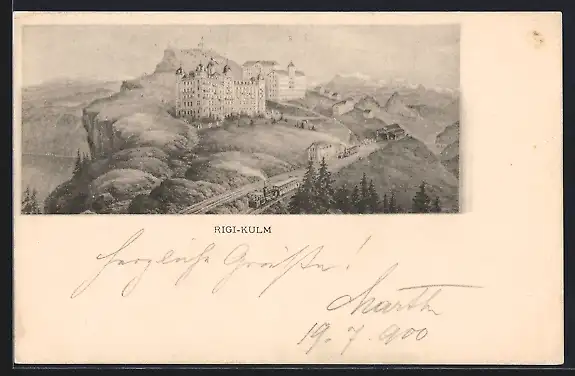 RIGI-KULM
Herzliche Grüße!
Martha
19.7.900